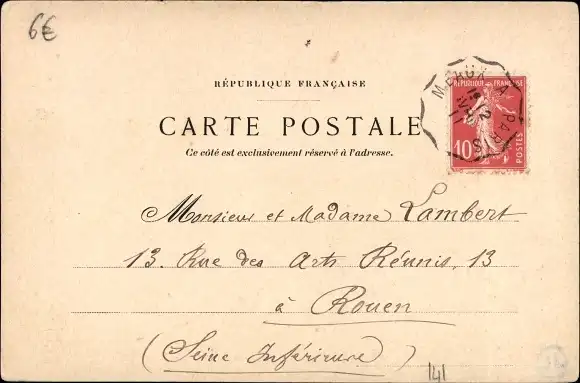 6€
RÉPUBLIQUE FRANÇAISE
CARTE POSTALE
Ce côté est exclusivement réservé à l'adresse.
RÉPUBLIQUE FRANÇAISE
10
POSTES
MEAUX A PARIS
Monsieur et Madame Lambert
13. Rue des Arts Réunis, 13
à Rouen
(Seine Inférieure)
141